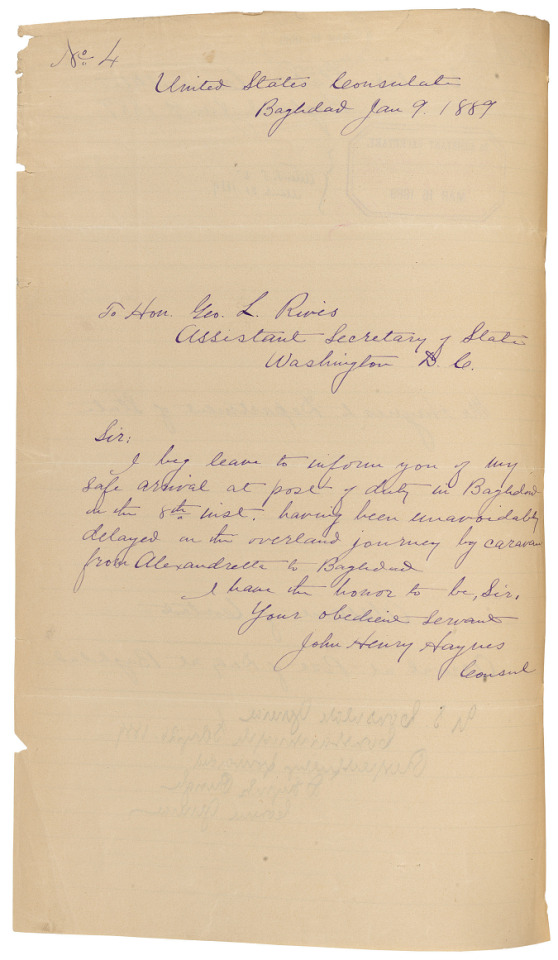 No. 4
United States Consulate
Baghdad Jan 9. 1889
To Hon. Geo. L. Rives
Assistant Secretary of State
Washington D. C.
Sir:
I beg leave to inform you of my
safe arrival at post of duty in Baghdad
on the 8th inst. having been unavoidably
delayed on the overland journey by caravan
from Alexandretta to Baghdad
I have the honor to be, Sir,
Your obedient servant
John Henry Haynes
Consul